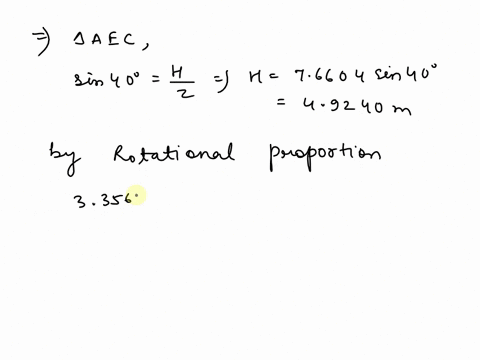 ⇒ △AEC,
sin 40° = H/2 ⇒ H = 7.6604 sin 40°
= 4.9240 m
by Rotational proportion
3.356